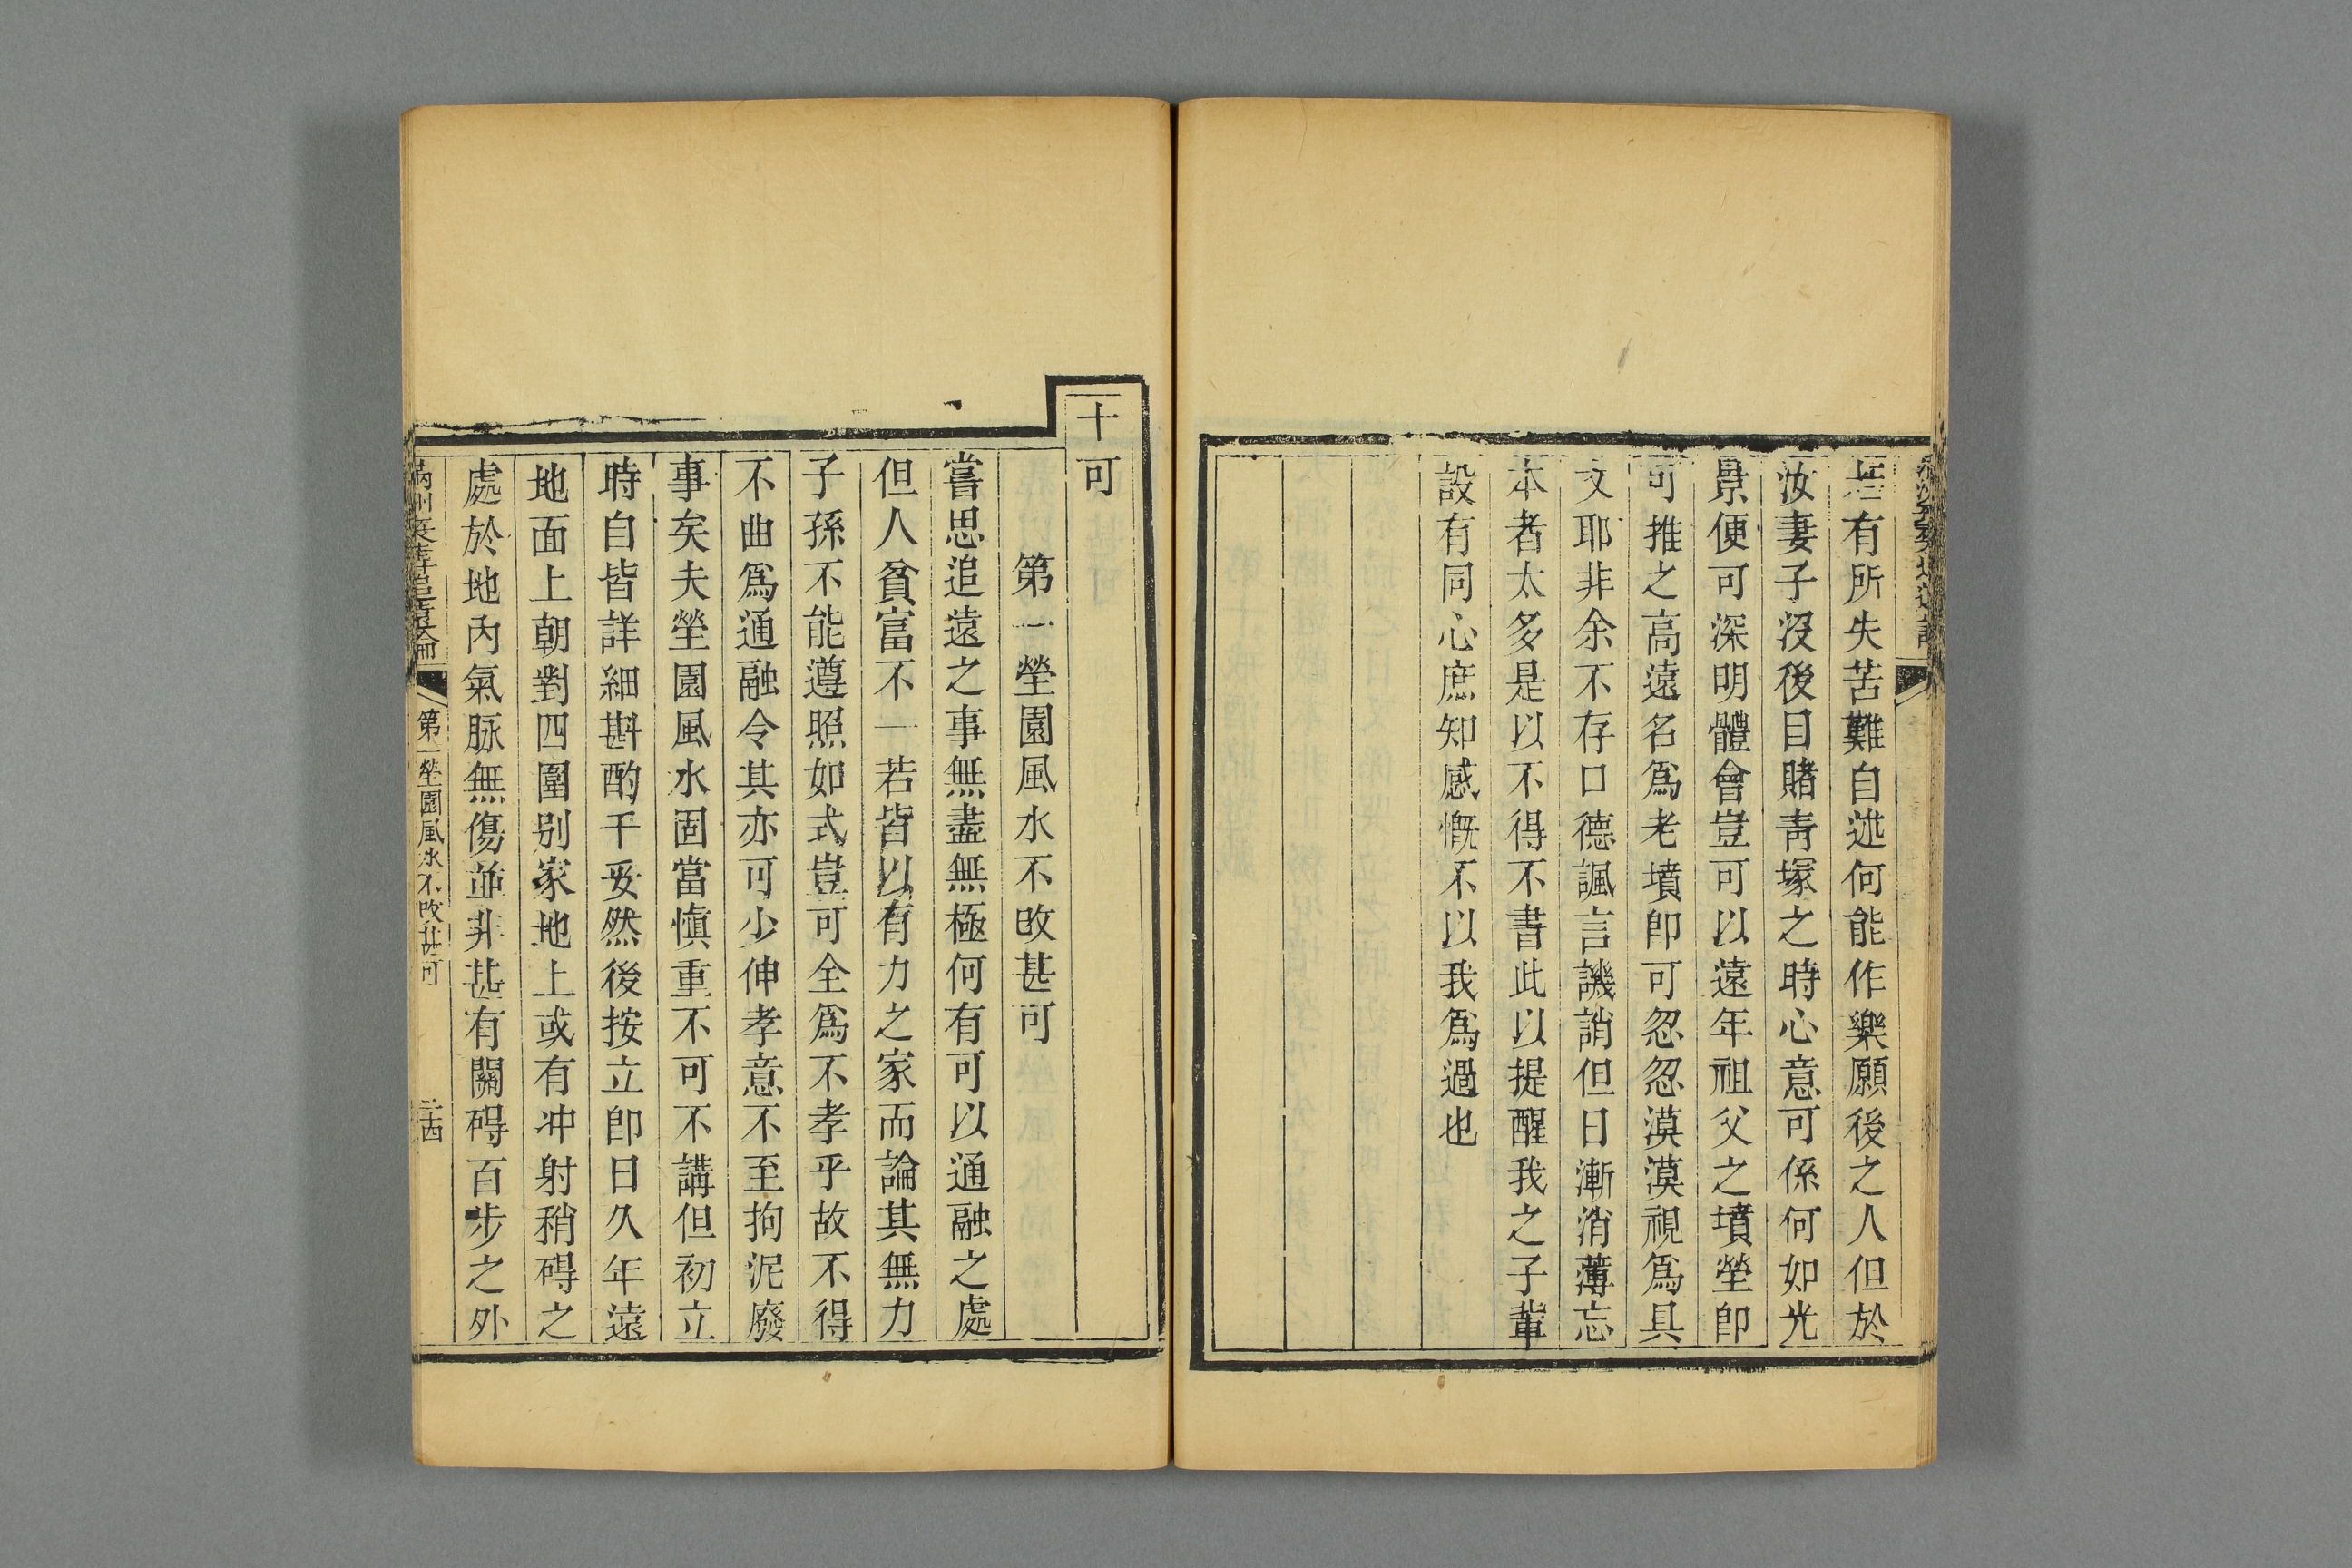 若有所失苦難自述何能作樂願後之人但於
汝妻子沒後目賭靑塚之時心意可係何如光
景便可深明體會豈可以遠年祖父之墳塋卽
可推之高遠名爲老墳卽可忽忽漠漠視爲具
文耶非余不存口德諷言譏誚但日漸消薄忘
本者太多是以不得不書此以提醒我之子輩
設有同心庶知感慨不以我爲過也
十可
第一塋園風水不改甚可
嘗思追遠之事無盡無極何有可以通融之處
但人貧富不一若皆以有力之家而論其無力
子孫不能遵照如式豈可全爲不孝乎故不得
不曲爲通融令其亦可少伸孝意不至拘泥廢
事矣夫塋園風水固當慎重不可不講但初立
時自皆詳細斟酌千妥然後按立卽日久年遠
地面上朝對四圍别家地上或有冲射稍碍之
處於地內氣脉無傷並非甚有關碍百步之外
第一塋園風水不改甚可